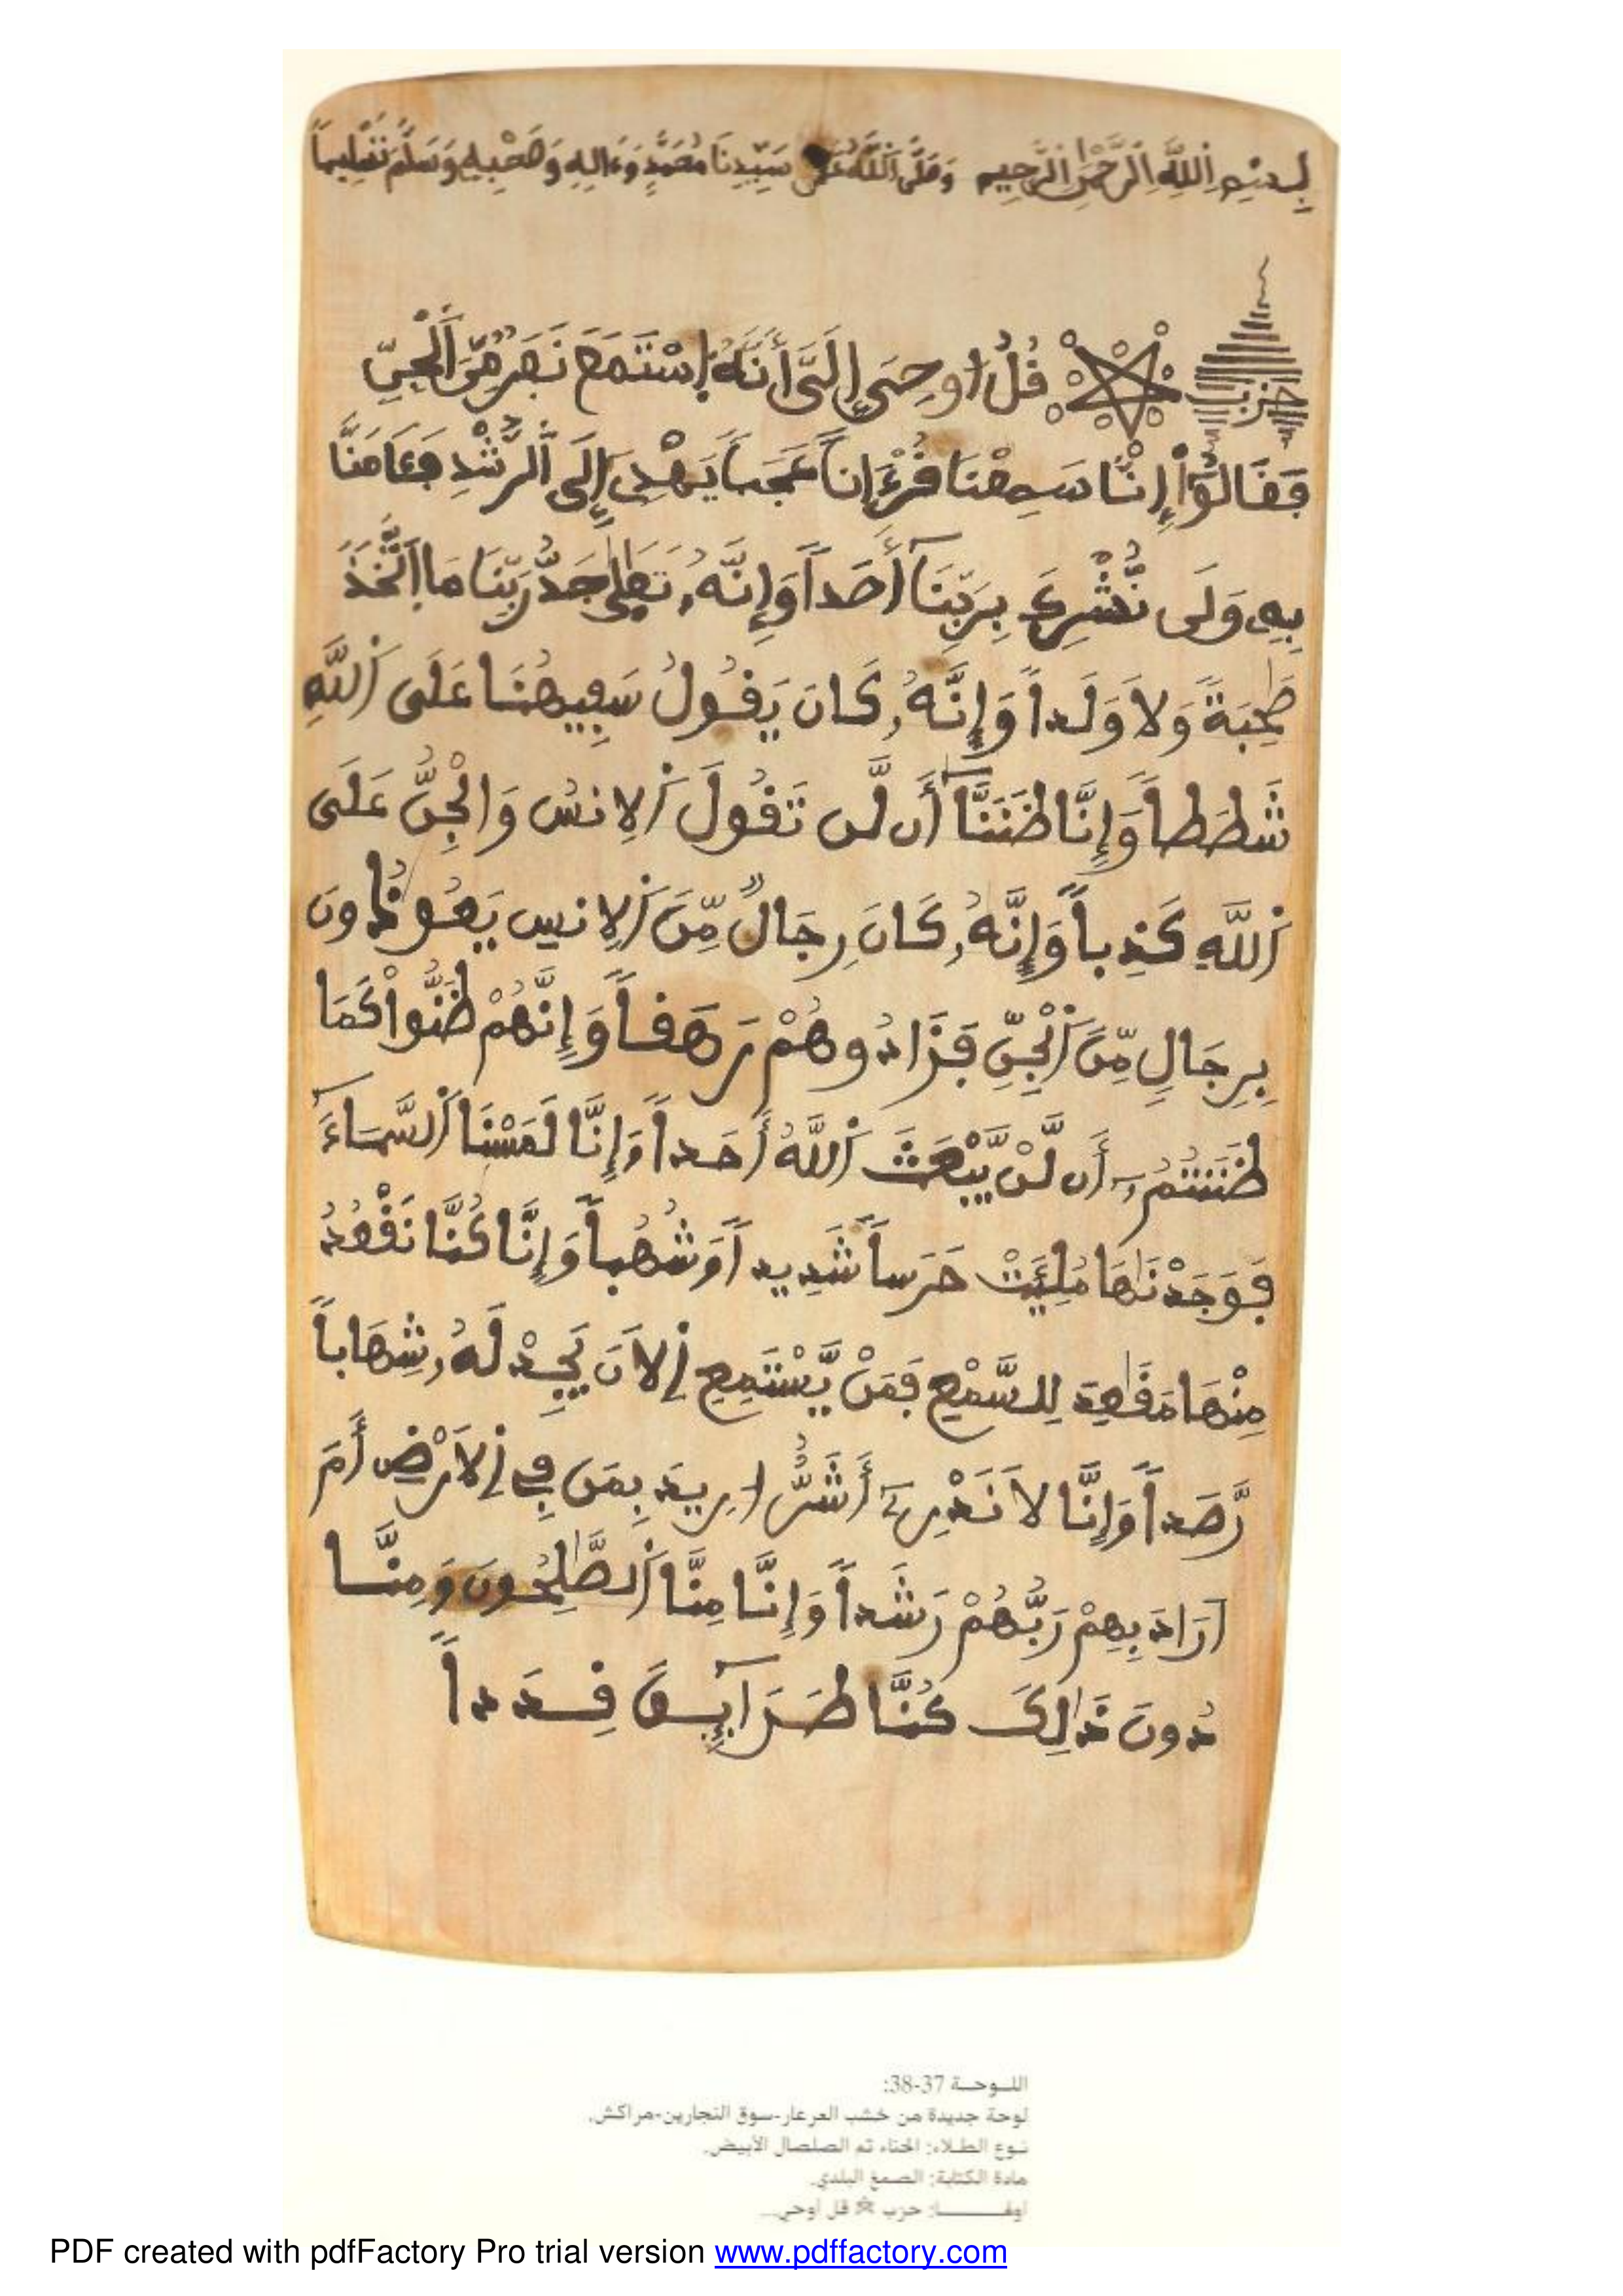 بِسْمِ اِللَّهِ اِلرَّحْمَٰنِ اِلرَّحِيمِ وَصَلَّى اَللَّهُ عَلَى سَيِّدِنَا مُحَمَّدٍ وَءَالِهِ وَصَحْبِهِ وَسَلَّمَ تَسْلِيماً
حزب قُلُ اوحِيَ إِلَيَّ أَنَّهُ اُسْتَمَعَ نَفَرٌ مِّنَ اَلْجِنِّ
فَقَالُوٓاْ إِنَّا سَمِعْنَا قُرْءَاناً عَجَباً يَهْدِےٓ إِلَى اَلرُّشْدِ فَـَٔامَنَّا
بِهِۦ وَلَن نُّشْرِكَ بِرَبِّنَآ أَحَداً وَإِنَّهُۥ تَعَٰلَىٰ جَدُّ رَبِّنَا مَا اَتَّخَذَ
صَٰحِبَةً وَلَا وَلَداً وَإِنَّهُۥ كَانَ يَقُولُ سَفِيهُنَا عَلَى اَللَّهِ
شَطَطاً وَإِنَّا ظَنَنَّآ أَن لَّن تَقُولَ اَلِانسُ وَالْجِنُّ عَلَى
اَللَّهِ كَذِباً وَإِنَّهُۥ كَانَ رِجَالٌ مِّنَ اَلِانسِ يَعُوذُونَ
بِرِجَالٍ مِّنَ اَلْجِنِّ فَزَادُوهُمْ رَهَقاً وَإِنَّهُمْ ظَنُّواْ كَمَا
ظَنَنتُمُۥٓ أَن لَّنْ يَّبْعَثَ اَللَّهُ أَحَداً وَإِنَّا لَمَسْنَا اَلسَّمَآءَ
فَوَجَدْنَٰهَا مُلِئَتْ حَرَساً شَدِيداً وَشُهُباً وَإِنَّا كُنَّا نَقْعُدُ
مِنْهَا مَقَٰعِدَ لِلسَّمْعِ فَمَنْ يَّسْتَمِعِ اِلَانَ يَجِدْ لَهُۥ شِهَاباً
رَّصَداً وَإِنَّا لَا نَدْرِےٓ أَشَرٌّ ارِيدَ بِمَن فِے اِلَارْضِ أَمَ
اَرَادَ بِهِمْ رَبُّهُمْ رَشَداً وَإِنَّا مِنَّا اَلصَّٰلِحُونَ وَمِنَّا
دُونَ ذَٰلِكَ كُنَّا طَرَآئِقَ قِدَداً
اللـوحـة 37-38:
لوحة جديدة من خشب العرعار-سوق النجارين-مراكش.
نـوع الطـلاء: الحناء ثم الصلصال الأبيض.
مادة الكتابة: الصمغ البلدي.
حزب قل اوحي...
PDF created with pdfFactory Pro trial version www.pdffactory.com